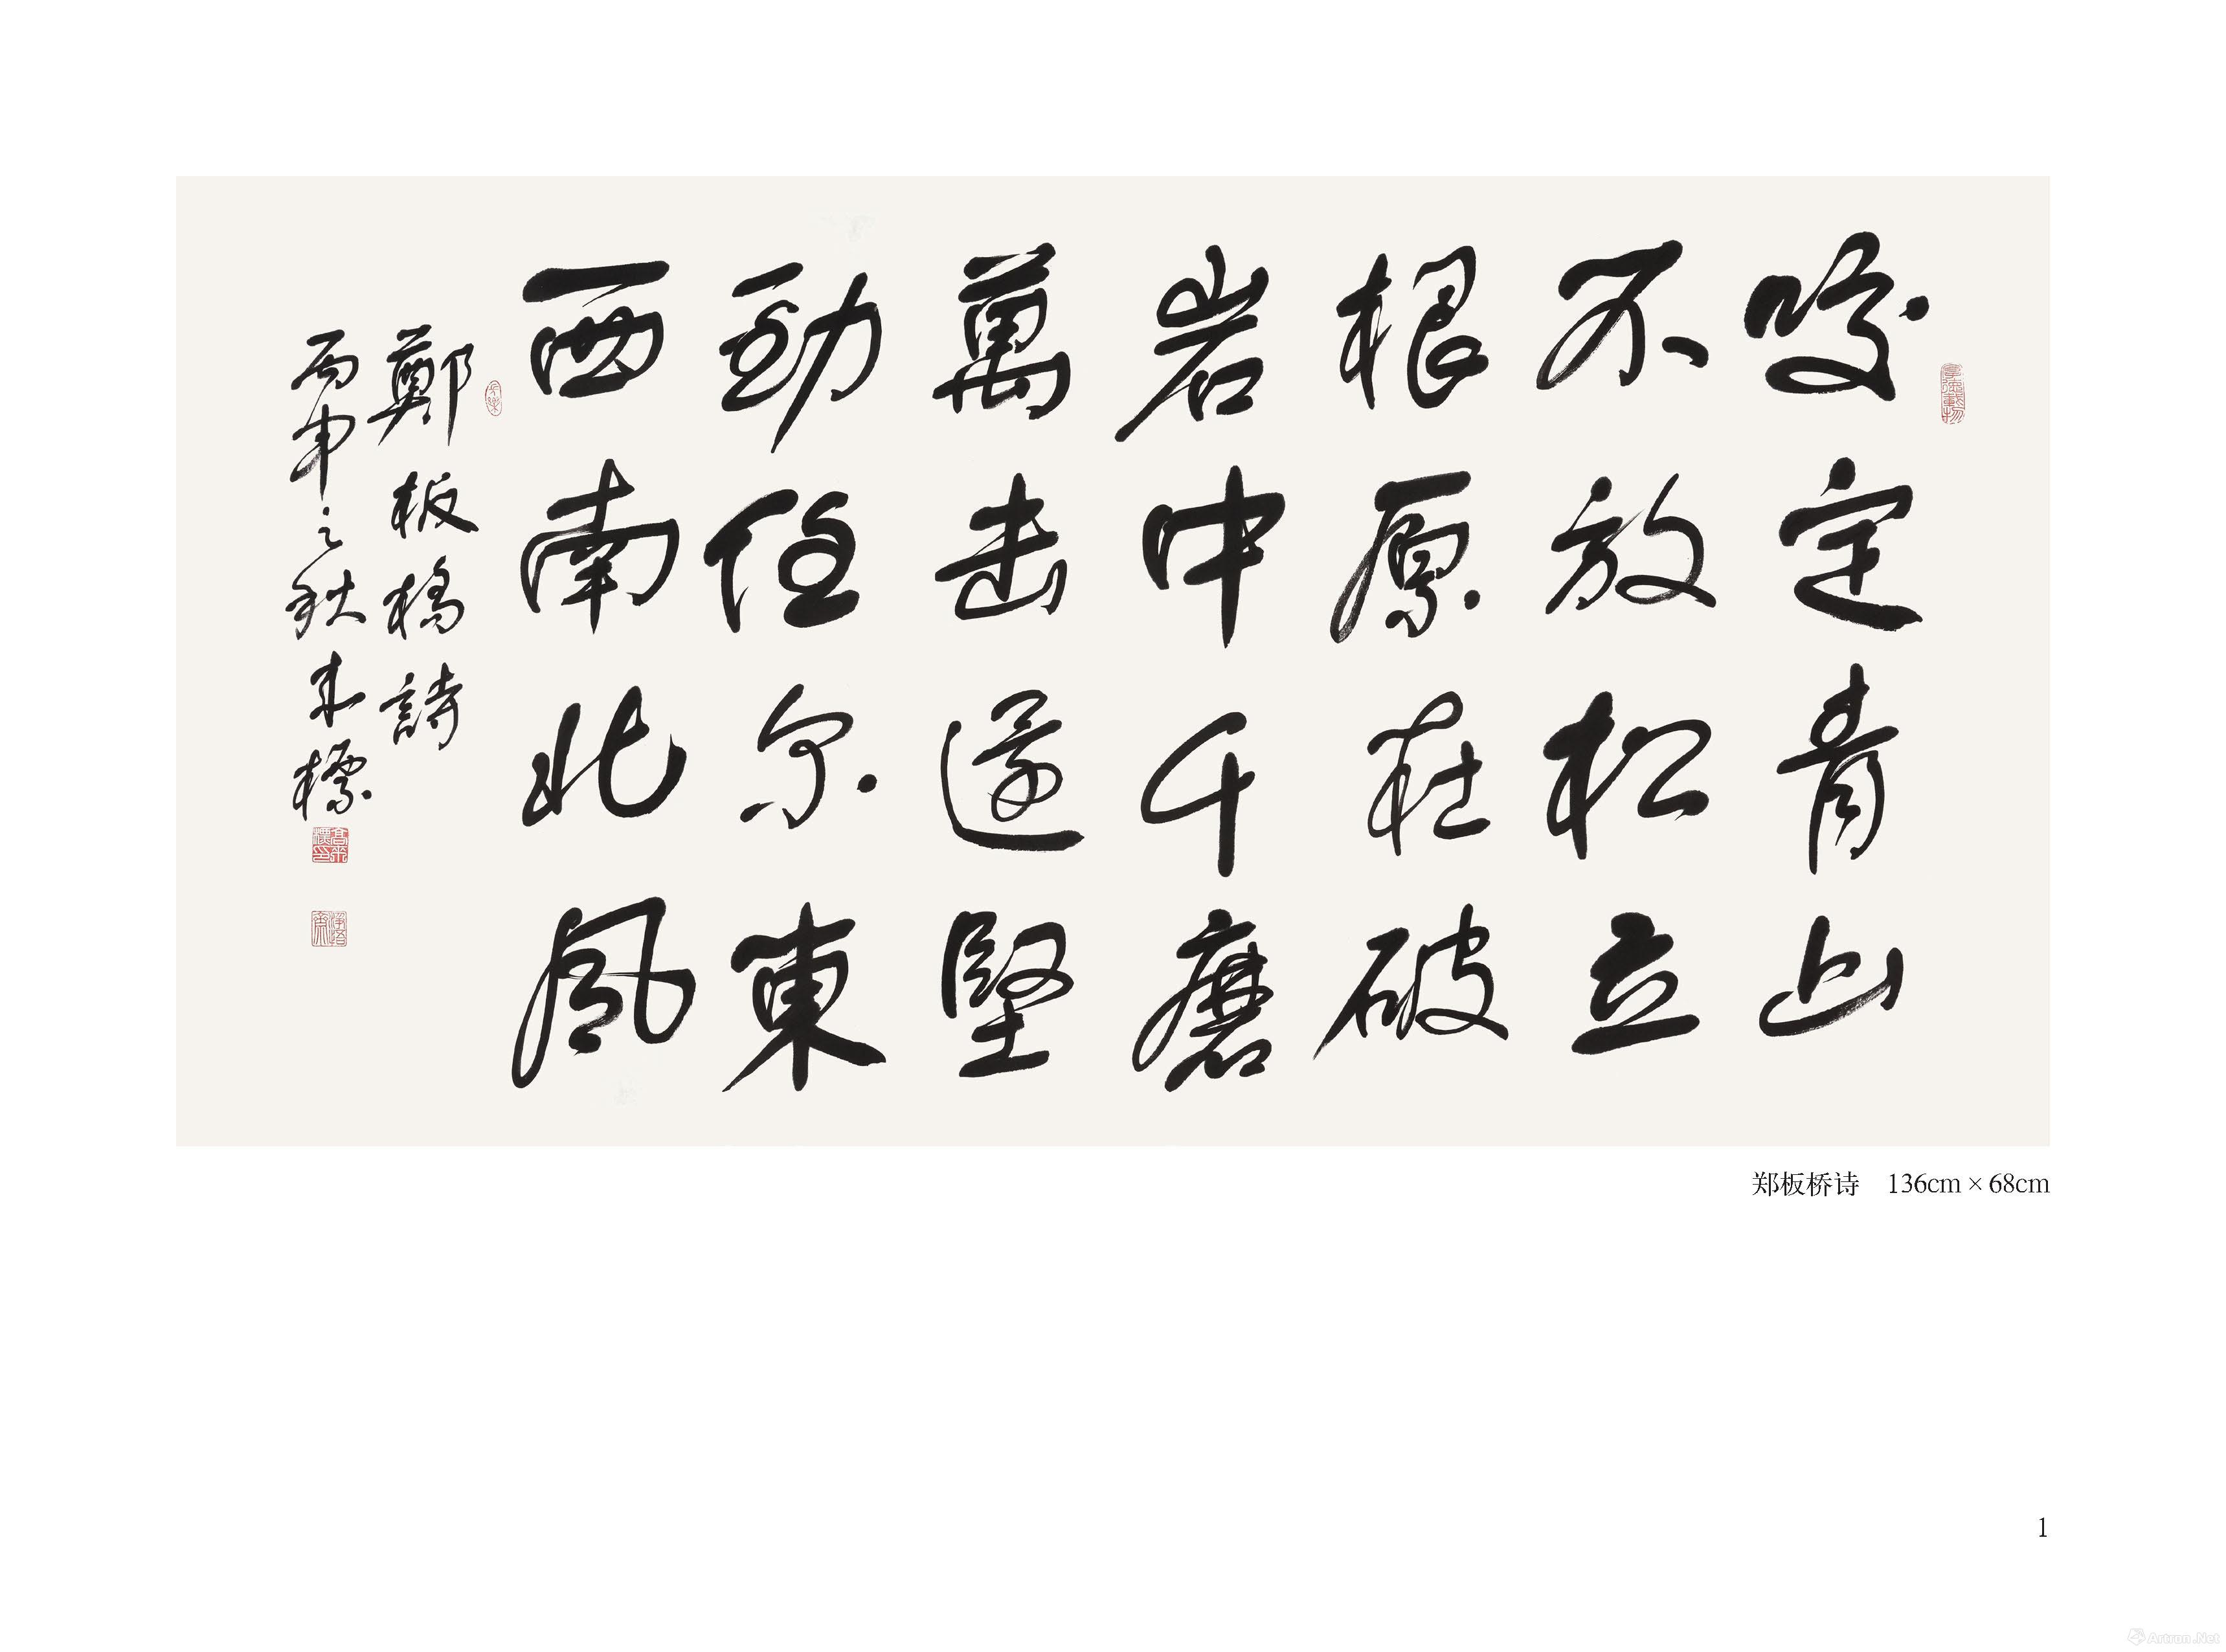 咬定青山
不放松立
根原在破
岩中千磨
萬击還堅
劲任尔東
西南北風
鄭板橋詩
丙申之秋来標
郑板桥诗 136cm×68cm
1
Artron.Net